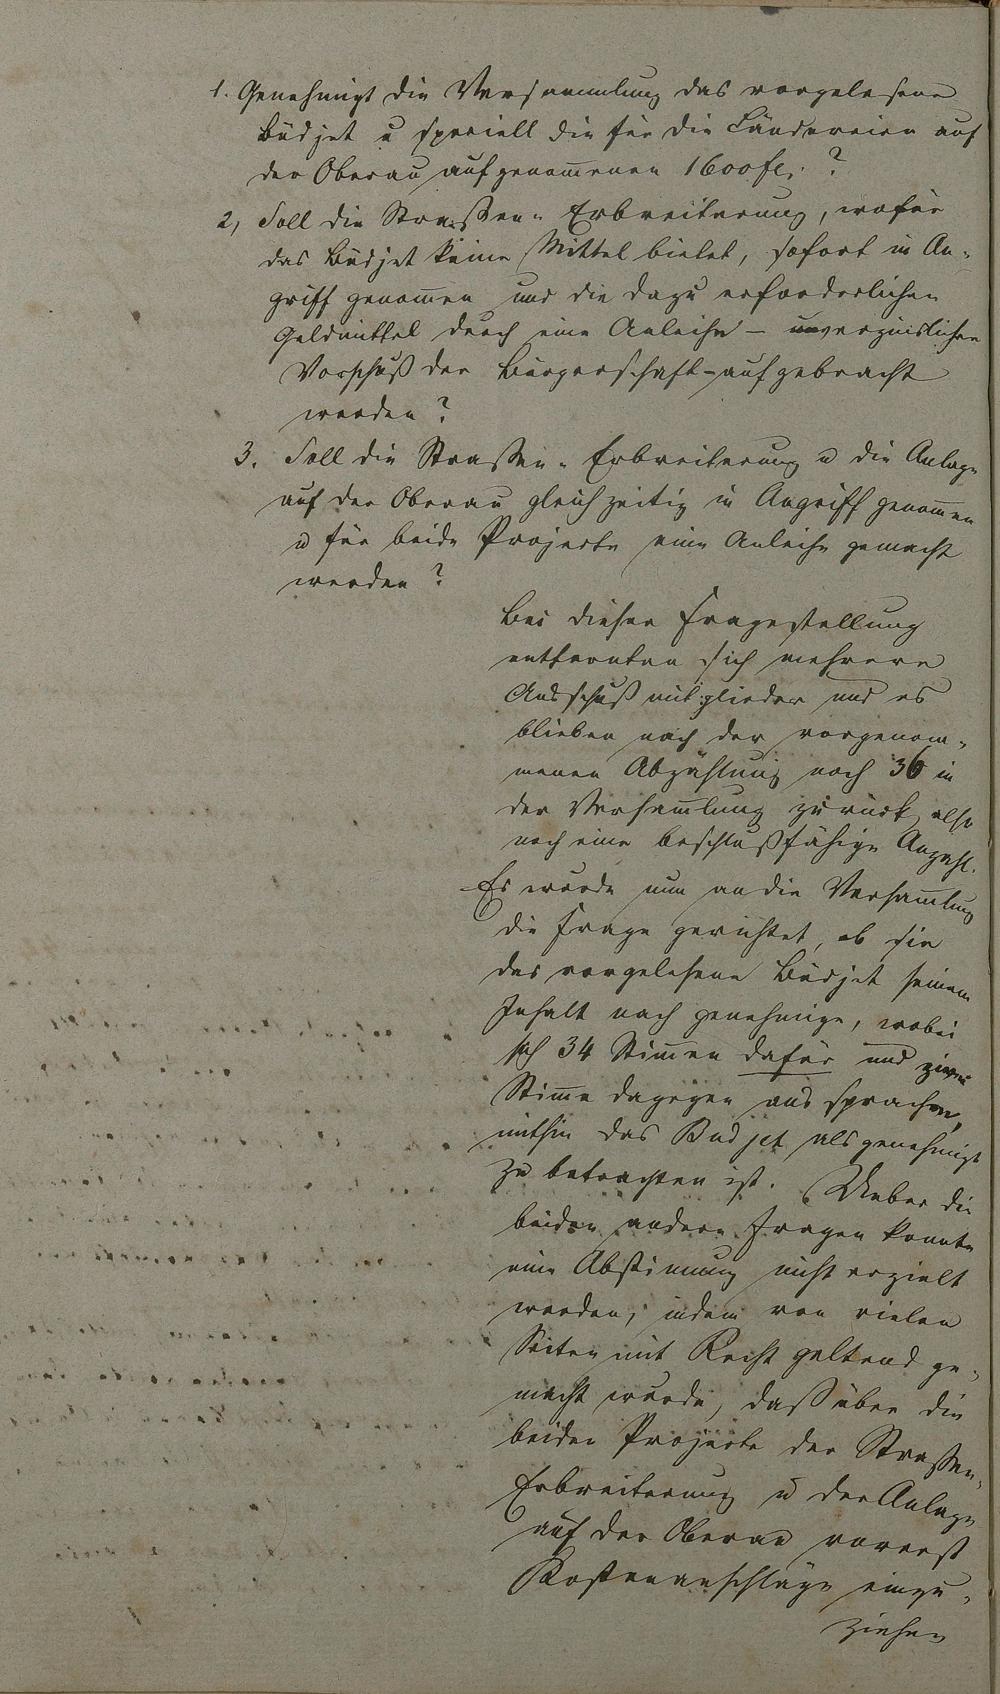 1. Genehmigt die Versammlung das vorgelesene
Büdjet u speciell die für die Ländereien auf
der Oberau aufgenom̄enen 1600 fl. ?
2, Soll die Straßen-Erbreiterung, wofür
das Büdjet keine Mittel bietet, sofort in An-
griff genom̄en und die dazu erforderlichen
Geldmittel durch eine Anleihe – unverzinslichen
Vorschuß der Bürgerschaft – aufgebracht
werden ?
3. Soll die Straßen-Erbreiterung u die Anlage
auf der Oberau gleichzeitig in Angriff genom̄en
u für beide Projecte eine Anleihe gemacht
werden ?
Bei dieser Fragestellung
entfernten sich mehrere
Ausschußmitglieder und es
blieben nach der vorgenom-
menen Abzählung noch 36 in
der Versam̄lung zurück, also
noch eine beschlußfähige Anzahl.
Es wurde nun an die Versam̄lung
die Frage gerichtet, ob sie
das vorgelesene Büdjet seinem
Inhalt nach genehmige, wobei
sich 34 Stim̄en dafür und zwei
Stim̄e dagegen aussprachen,
mithin das Budjet als genehmigt
zu betrachten ist. Ueber die
beiden andern Fragen konnte
eine Abstimmung nicht erzielt
werden, indem von vielen
Seiten mit Recht geltend ge-
macht wurde, daß über die
beiden Projecte der Straßen-
Erbreiterung u der Anlage
auf der Oberau vorerst
Kostenanschläge einzu-
ziehen